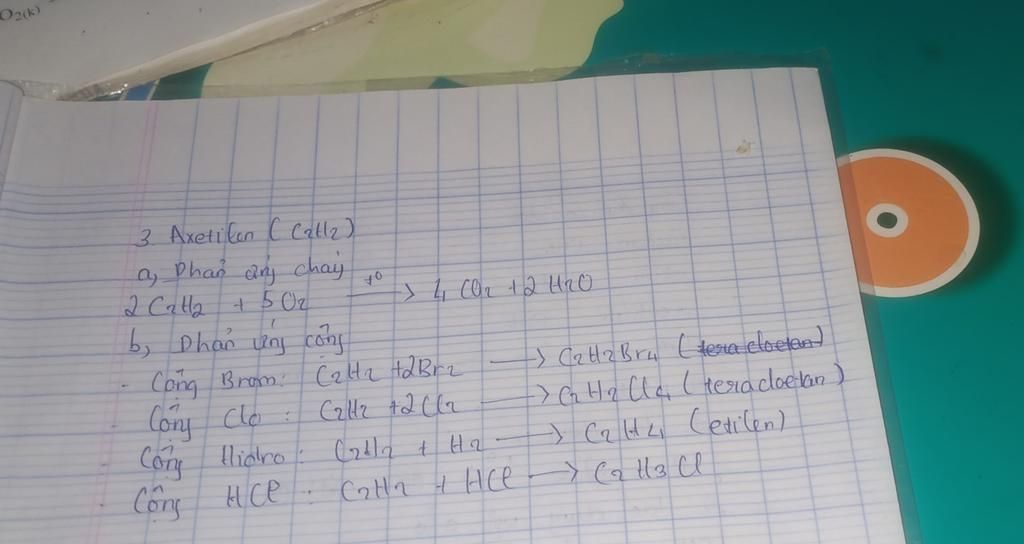 O2(k)
3 Axetilen (C2H2)
a, Phản ứng cháy
2C2H2 + 5O2 —t°—> 4CO2 + 2H2O
b, Phản ứng cộng
- Cộng Brom: C2H2 + 2Br2 —> C2H2Br4 (tera cloetan)
- Cộng Clo : C2H2 + 2Cl2 —> C2H2Cl4 (teracloetan)
- Cộng Hidro : C2H2 + H2 —> C2H4 (etilen)
- Cộng HCl : C2H2 + HCl —> C2H3Cl